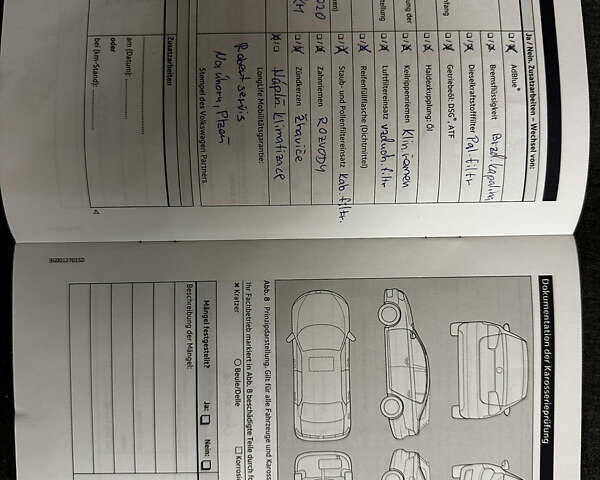 Ja / Nein. Zusatzarbeiten – Wechsel von:
AdBlue®
Bremsflüssigkeit Brzd. kapaliny
Dieselkraftstofffilter Pal filtr
Getriebeöl: DSG®, ATF
Haldexkupplung: Öl
Keilrippenriemen Klin.
Luftfiltereinsatz vzduch filtr
Reifenfüllflasche (Dichtmittel)
Staub- und Pollenfiltereinsatz kab. filtr.
Zahnriemen ROZVODY
Zündkerzen žhaviče
Náplň klimatizace
LongLife Mobilitätsgarantie:
servis
Plzeň
Stempel des Volkswagen Partners
Zusatzarbeiten
am (Datum):
oder
bei (km-Stand):
2020
KM
3G0012701SD
Dokumentation der Karosserieprüfung
Abb. 8 Prinzipdarstellung. Gilt für alle Fahrzeuge und Kaross
Ihr Fachbetrieb markiert in Abb. 8 beschädigte Teile durch fo
× Kratzer ○ Beule/Delle □ Korrosi
Mängel festgestellt? Ja: □ Nein: □
Beschreibung der Mängel: